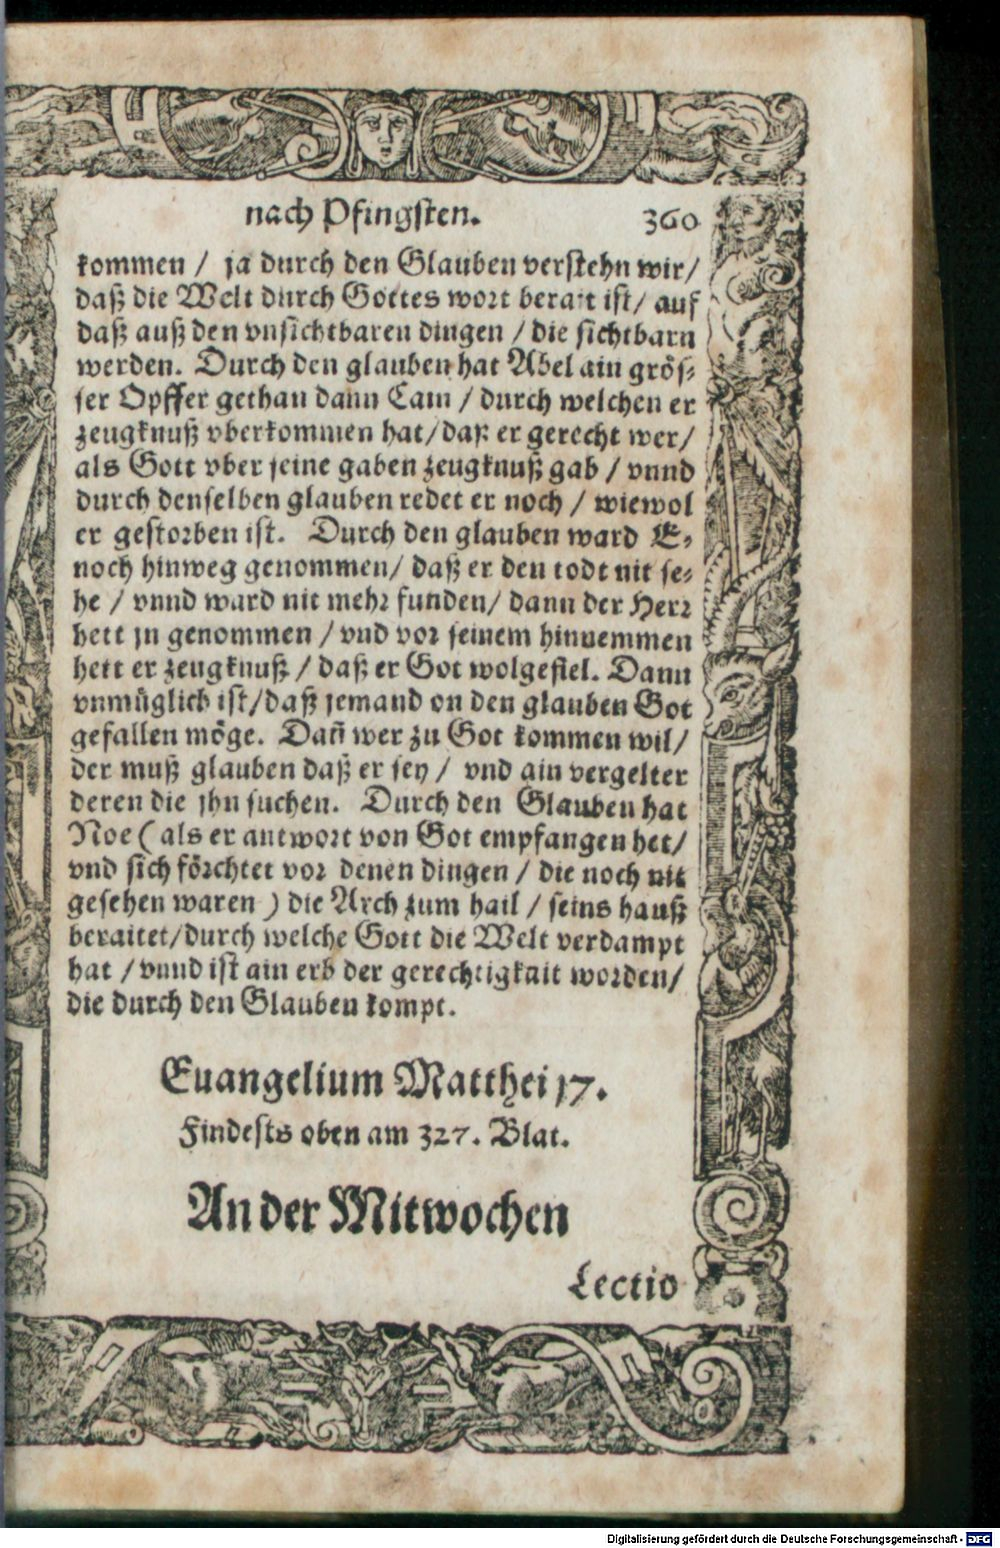 nach Pfingsten. 360
kommen / ja durch den Glauben verstehn wir/
daß die Welt durch Gottes wort berait ist / auf
daß auß den vnsichtbaren dingen / die sichtbarn
werden. Durch den glauben hat Abel ain grös⸗
ser Opffer gethan dann Cain / durch welchen er
zeugknuß vberkommen hat / daß er gerecht wer/
als Gott vber seine gaben zeugknuß gab / vnnd
durch denselben glauben redet er noch / wiewol
er gestorben ist. Durch den glauben ward E⸗
noch hinweg genommen / daß er den todt nit se⸗
he / vnnd ward nit mehr funden / dann der Herr
hett jn genommen / vnd vor seinem hinnemmen
hett er zeugknuß / daß er Got wolgefiel. Dann
vnmüglich ist / daß jemand on den glauben Got
gefallen möge. Dañ wer zu Got kommen wil/
der muß glauben daß er sey / vnd ain vergelter
deren die jhn suchen. Durch den Glauben hat
Noe ( als er antwort von Got empfangen het/
vnd sich förchtet vor denen dingen / die noch nit
gesehen waren ) die Arch zum hail / seins hauß
beraitet / durch welche Gott die Welt verdampt
hat / vnnd ist ain erb der gerechtigkait worden/
die durch den Glauben kompt.
Euangelium Matthei 17.
Findests oben am 327. Blat.
An der Mitwochen
Lectio
Digitalisierung gefördert durch die Deutsche Forschungsgemeinschaft - DFG